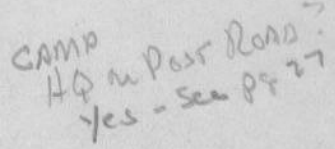 CAMP
HQ on POST ROAD?
Yes - See pg 27